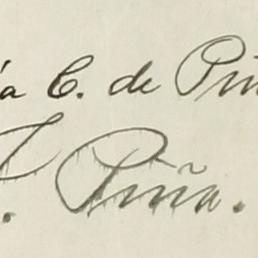 a C. de Piñ
T. Piña.